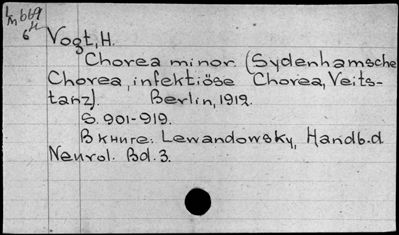 Vogt, H.
Chorea minor. (Sydenhamsche
Chorea, infektiöse Chorea, Veits-
tanz). Berlin, 1912.
S. 901-919.
В книге: Lewandowsky, Handb. d.
Neurol. Bd. 3.